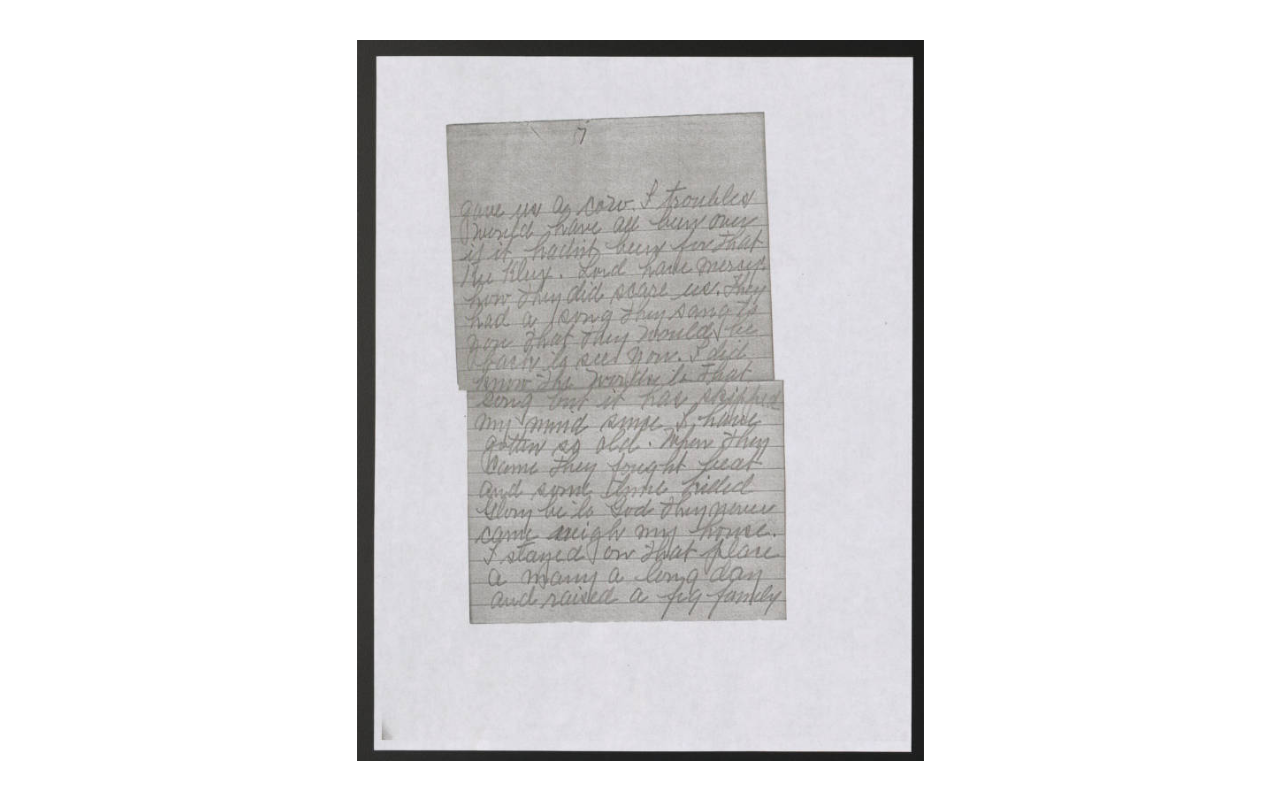 7
gave us a cow. I troubles
would have all been over
if it hadnt been for that
Ku Klux. Lord have mercy
how they did scare us. They
had a song they sang to
you that they would be
back to see you. I did
know the words to that
song but it has skipped
my mind since I have
gotten so old. When they
came they fought beat
and some time killed
Glory be to God they never
came neigh my house.
I stayed on that place
a many a long day
and raised a family